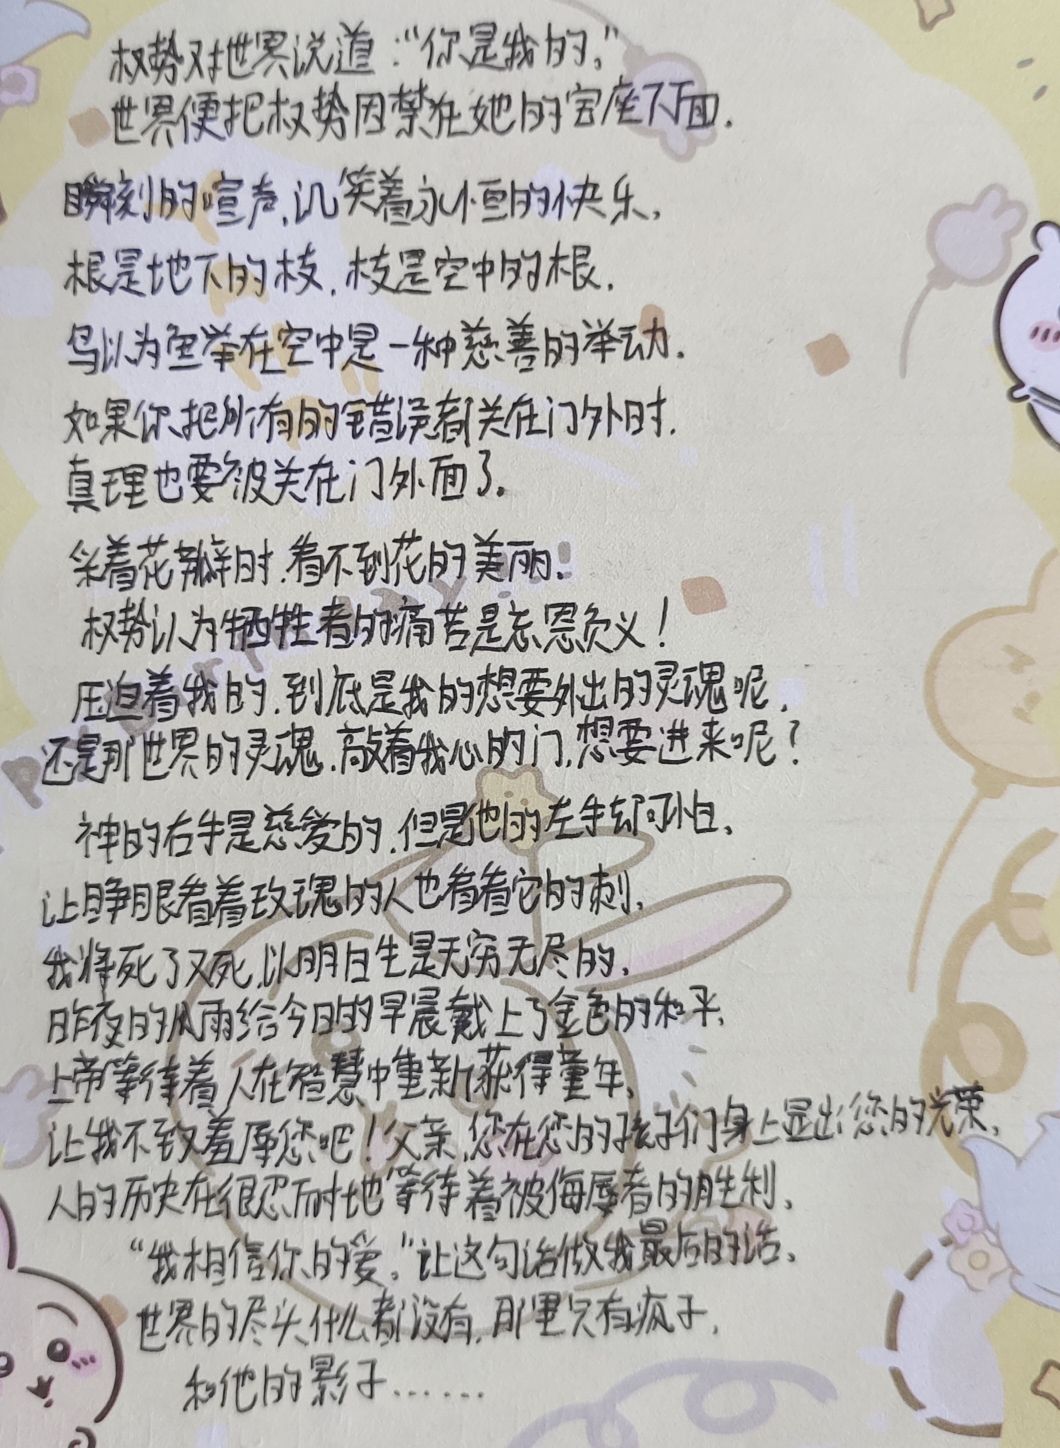 权势对世界说道：“你是我的。”
世界便把权势囚禁在她的宝座下面．
瞬刻的喧声，讥笑着永恒的快乐，
根是地下的枝，枝是空中的根．
鸟以为鱼举在空中是一种慈善的举动．
如果你把所有的错误都关在门外时．
真理也要被关在门外面了．
采着花瓣时．看不到花的美丽．
权势认为牺牲者的痛苦是忘恩负义！
压迫着我的，到底是我的想要外出的灵魂呢，
还是那世界的灵魂，敲着我心的门，想要进来呢？
神的右手是慈爱的，但是他的左手却可怕、
让睁眼看着玫瑰的人也看看它的刺，
我将死了又死，以明白生是无穷无尽的，
昨夜的风雨给今日的早晨戴上了金色的和平，
上帝等待着人在智慧中重新获得童年，
让我不致羞辱您吧！父亲，您在您的孩子们身上显出您的光荣，
人的历史在很忍耐地等待着被侮辱者的胜利、
“我相信你的爱。”让这句话做我最后的话、
世界的尽头什么都没有，那里只有疯子，
和他的影子……